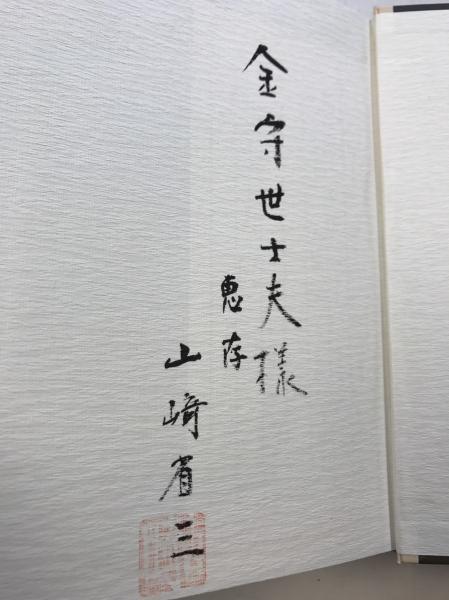 金守世士夫様
恵存
山崎省三